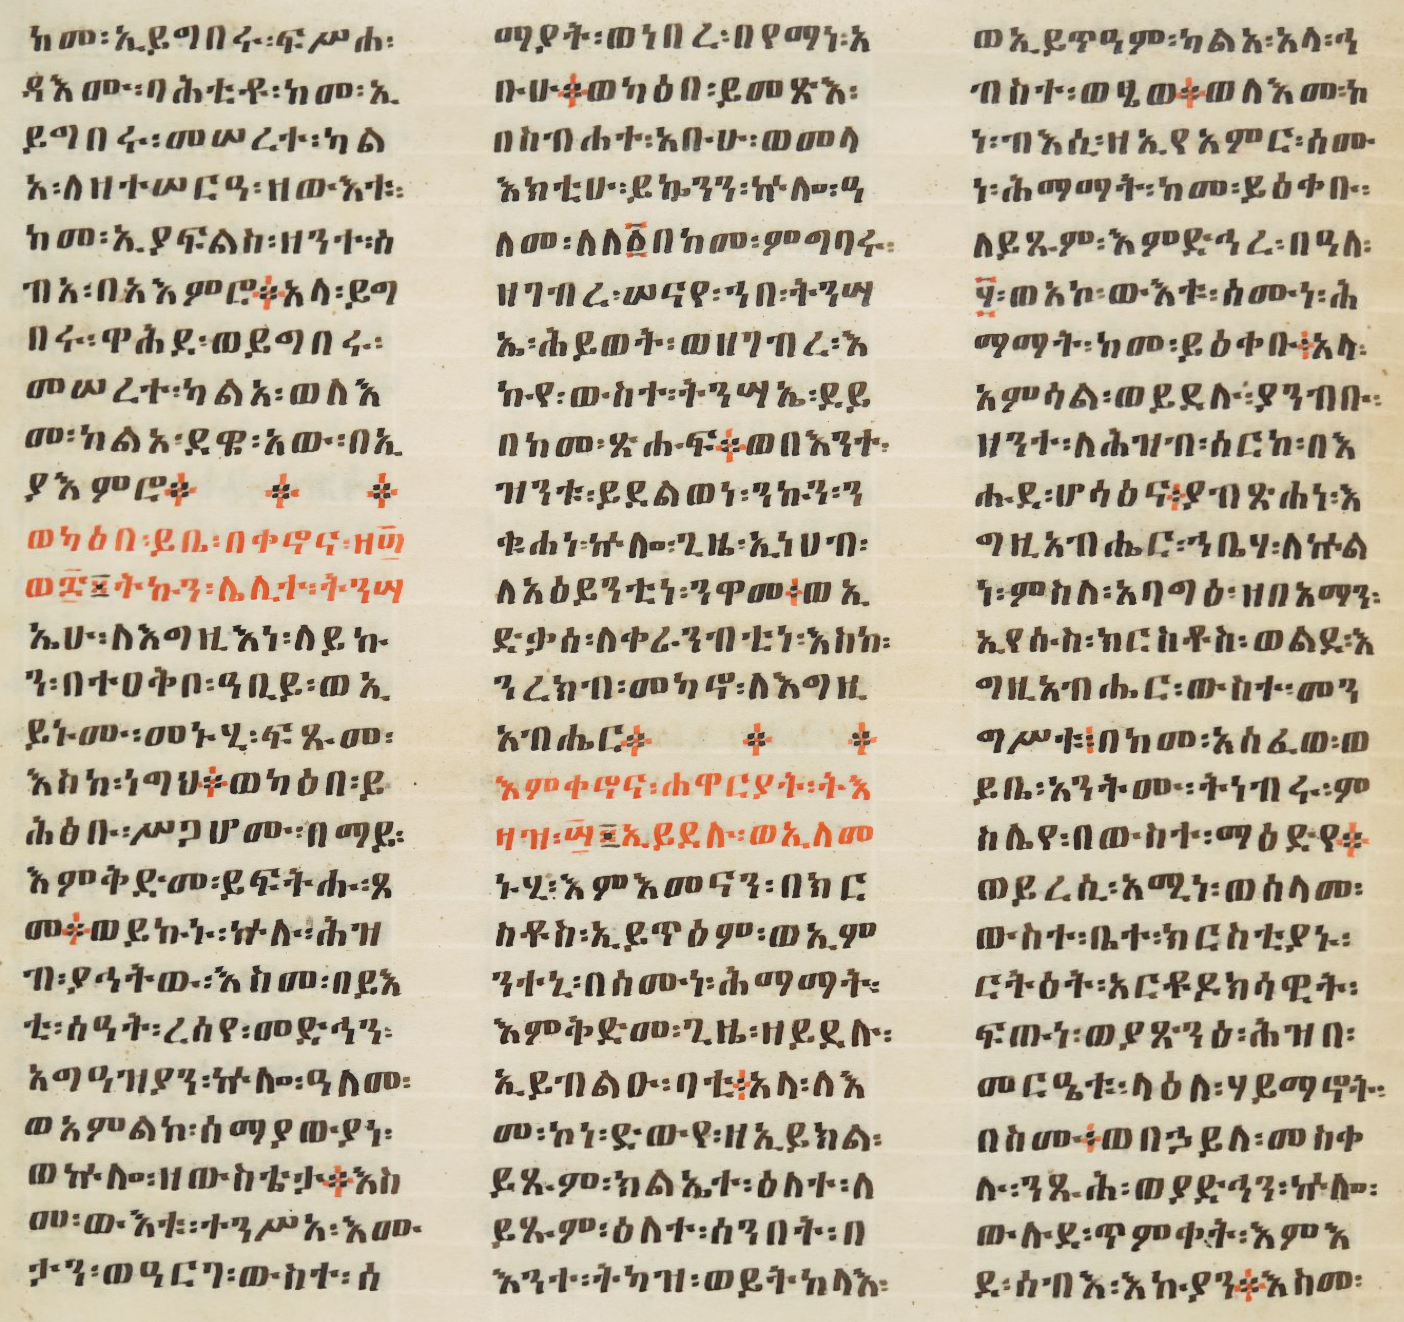 ከመ፡ኢይግበሩ፡ፍሥሐ፡
ዳእሙ፡ባሕቲቶ፡ከመ፡ኢ
ይግበሩ፡መሠረተ፡ካል
አ፡ለዘተሠርዓ፡ዘውእቱ፡
ከመ፡ኢያፍልስ፡ዘንተ፡ስ
ብአ፡በአእምሮ፨አላ፡ይግ
በሩ፡ዋሕደ፡ወይግበሩ፡
መሠረተ፡ካልአ፡ወለእ
መ፡ከልአ፡ደዌ፡አው፡በኢ
ያእምሮ፨ ፨ ፨
ወካዕበ፡ይቤ፡በቀኖና፡ዘ፴
ወ፰፤ትኩን፡ሌሊተ፡ትንሣ
ኤሁ፡ለእግዚእነ፡ለይኩ
ን፡በተዐቅቦ፡ዓቢይ፡ወኢ
ይኑሙ፡መኑሂ፡ፍጹመ፡
እስከ፡ነግህ፨ወካዕበ፡ይ
ሕፅቡ፡ሥጋሆሙ፡በማይ፡
እምቅድመ፡ይፍትሑ፡ጾ
መ፨ወይኩኑ፡ኵሉ፡ሕዝ
ብ፡ያኅትው፡እስመ፡በይእ
ቲ፡ሰዓት፡ረሰየ፡መድኅን፡
አግዓዝያን፡ኵሎ፡ዓለመ፡
ወአምልከ፡ሰማያውያነ፡
ወኵሎ፡ዘውስቴታ፨እስ
መ፡ውእቱ፡ተንሥአ፡እሙ
ታን፡ወዓርገ፡ውስተ፡ሰ
ማያት፡ወነበረ፡በየማነ፡አ
ቡሁ፨ወካዕበ፡ይመጽእ፡
በስብሐተ፡አቡሁ፡ወመላ
እክቲሁ፡ይኴንን፡ኵሎ፡ዓ
ለመ፡ለለ፩በከመ፡ምግባሩ፡
ዘገብረ፡ሠናየ፡ኀበ፡ትንሣ
ኤ፡ሕይወት፡ወዘገብረ፡እ
ኩየ፡ውስተ፡ትንሣኤ፡ደይ
በከመ፡ጽሑፍ፨ወበእንተ፡
ዝንቱ፡ይደልወነ፡ንኩን፡ን
ቁሐነ፡ኵሎ፡ጊዜ፡ኢነሀብ፡
ለአዕይንቲነ፡ንዋመ፨ወኢ
ድቃሰ፡ለቀራንብቲነ፡እስከ፡
ንረክብ፡መካኖ፡ለእግዚ
አብሔር፨ ፨ ፨
እምቀኖና፡ሐዋርያት፡ትእ
ዛዝ፡፴፤ኢይደሉ፡ወኢለመ
ኑሂ፡እምእመናን፡በክር
ስቶስ፡ኢይጥዕም፡ወኢም
ንተኒ፡በሰሙነ፡ሕማማት፡
እምቅድመ፡ጊዜ፡ዘይደሉ፡
ኢይብልዑ፡ባቲ፨አላ፡ለእ
መ፡ኮነ፡ድውየ፡ዘኢይክል፡
ይጹም፡ክልኤተ፡ዕለተ፡ለ
ይጹም፡ዕለተ፡ሰንበት፡በ
እንተ፡ትካዝ፡ወይትከላእ፡
ወኢይጥዓም፡ካልአ፡አላ፡ኅ
ብስተ፡ወፄወ፨ወለእመ፡ከ
ነ፡ብእሲ፡ዘኢየአምር፡ሰሙ
ነ፡ሕማማት፡ከመ፡ይዕቀቡ፡
ለይጹም፡እምድኅረ፡በዓለ፡
፶፡ወአኮ፡ውእቱ፡ሰሙነ፡ሕ
ማማት፡ከመ፡ይዕቀቡ፨አላ፡
አምሳል፡ወይደሉ፡ያንብቡ፡
ዘንተ፡ለሕዝብ፡ሰርከ፡በእ
ሑደ፡ሆሳዕና፨ያብጽሐነ፡እ
ግዚአብሔር፡ኀቤሃ፡ለኵል
ነ፡ምስለ፡አባግዕ፡ዘበአማን፡
ኢየሱስ፡ክርስቶስ፡ወልደ፡እ
ግዚአብሔር፡ውስተ፡መን
ግሥቱ፨በከመ፡አስፈወ፡ወ
ይቤ፡አንትሙ፡ትነብሩ፡ም
ስሌየ፡በውስተ፡ማዕድየ፨
ወይረሲ፡አሚነ፡ወሰላመ፡
ውስተ፡ቤተ፡ክርስቲያኑ፡
ርትዕት፡አርቶዶክሳዊት፡
ፍጡነ፡ወያጽንዕ፡ሕዝበ፡
መርዔቱ፡ላዕለ፡ሃይማኖት፡
በስሙ፨ወበኃይለ፡መስቀ
ሉ፡ንጹሕ፡ወያድኅን፡ኵሎ፡
ውሉደ፡ጥምቀት፡እምእ
ደ፡ሰብእ፡እኩያን፨እስመ፡